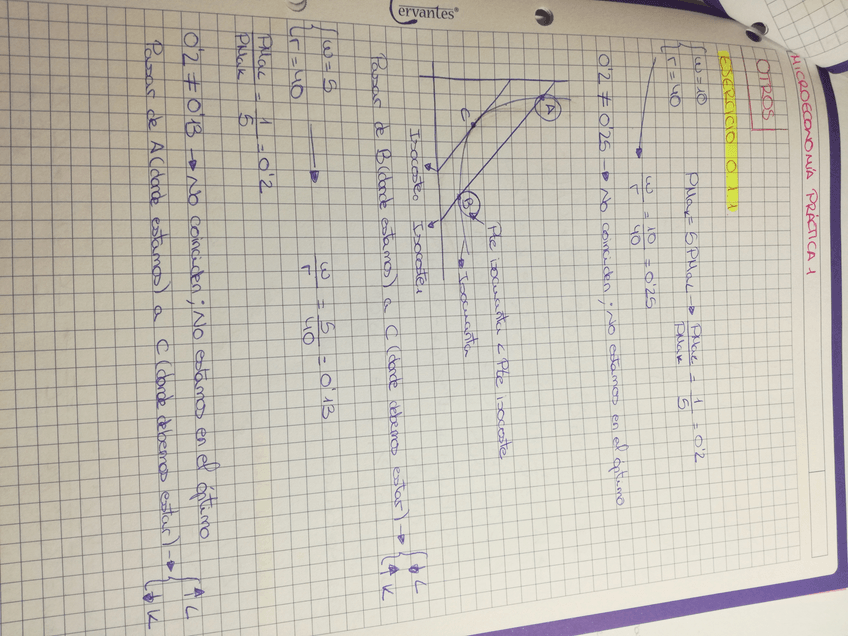 Cervantes
MICROECONOMÍA PRÁCTICA 1
OTROS
EJERCICIO 0.1.1
w = 10
r = 40
PMaK = 5PMaL → PMaL / PMaK = 1 / 5 = 0'2
w / r = 10 / 40 = 0'25
0'2 ≠ 0'25 → No coinciden; No estamos en el óptimo
A
Pte isocuanta < Pte isocoste
C
B
Isocuanta
Isocoste₂ Isocoste₁
Pasar de B (donde estamos) a C (donde debemos estar) → ↓ L
↑ K
w = 5
r = 40
→ w / r = 5 / 40 = 0'13
PMaL / PMaK = 1 / 5 = 0'2
0'2 ≠ 0'13 → No coinciden; No estamos en el óptimo
Pasar de A (donde estamos) a C (donde debemos estar) → ↑ L
↓ K